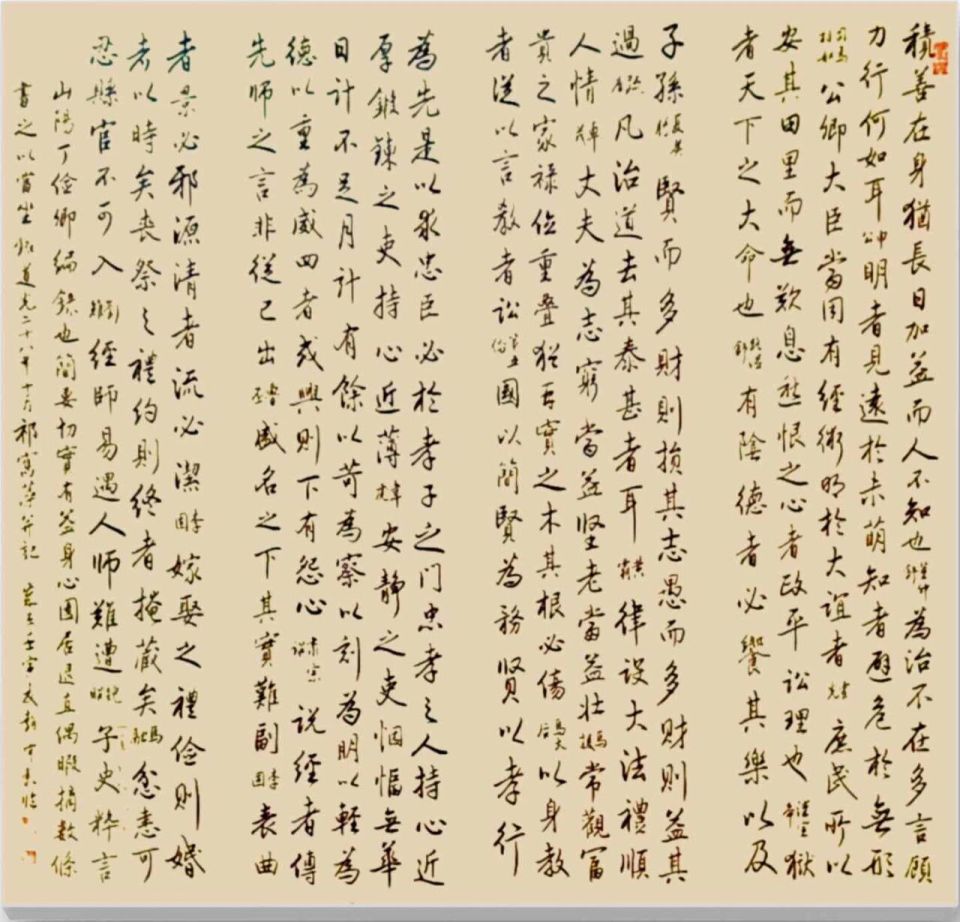 積善在身猶長日加益而人不知也董仲舒為治不在多言顧
力行何如耳申公明者見遠於未萌知者避危於無形
司馬相如公卿大臣當用有經術明於大誼者庶民所以
安其田里而無歎息愁恨之心者政平訟理也獄
者天下之大命也路溫舒有陰德者必饗其樂以及
子孫賢而多財則損其志愚而多財則益其
過疏廣凡治道去其泰甚者耳黃霸律設大法禮順
人情卓茂丈夫為志窮當益堅老當益壯馬援常觀富
貴之家祿位重疊猶再實之木其根必傷以身教
者從以言教者訟第五倫國以簡賢為務賢以孝行
為先是以求忠臣必於孝子之門忠孝之人持心近
厚鍛鍊之吏持心近薄韋彪安靜之吏悃愊無華
日計不足月計有餘以苛為察以刻為明以輕為
德以重為威四者或興則下有怨心肅宗說經者傳
先師之言非從己出魯丕盛名之下其實難副李固表曲
者景必邪源清者流必潔李固嫁娶之禮儉則婚
者以時矣喪祭之禮約則終者掩藏矣馬融忿恚可
忍縣官不可入經師易遇人師難遭子史粹言
山陽丁儉卿編錄也簡要切實有益身心園居退直偶暇摘數條
書之以當坐銘道光二十八年十月祁寯藻并記